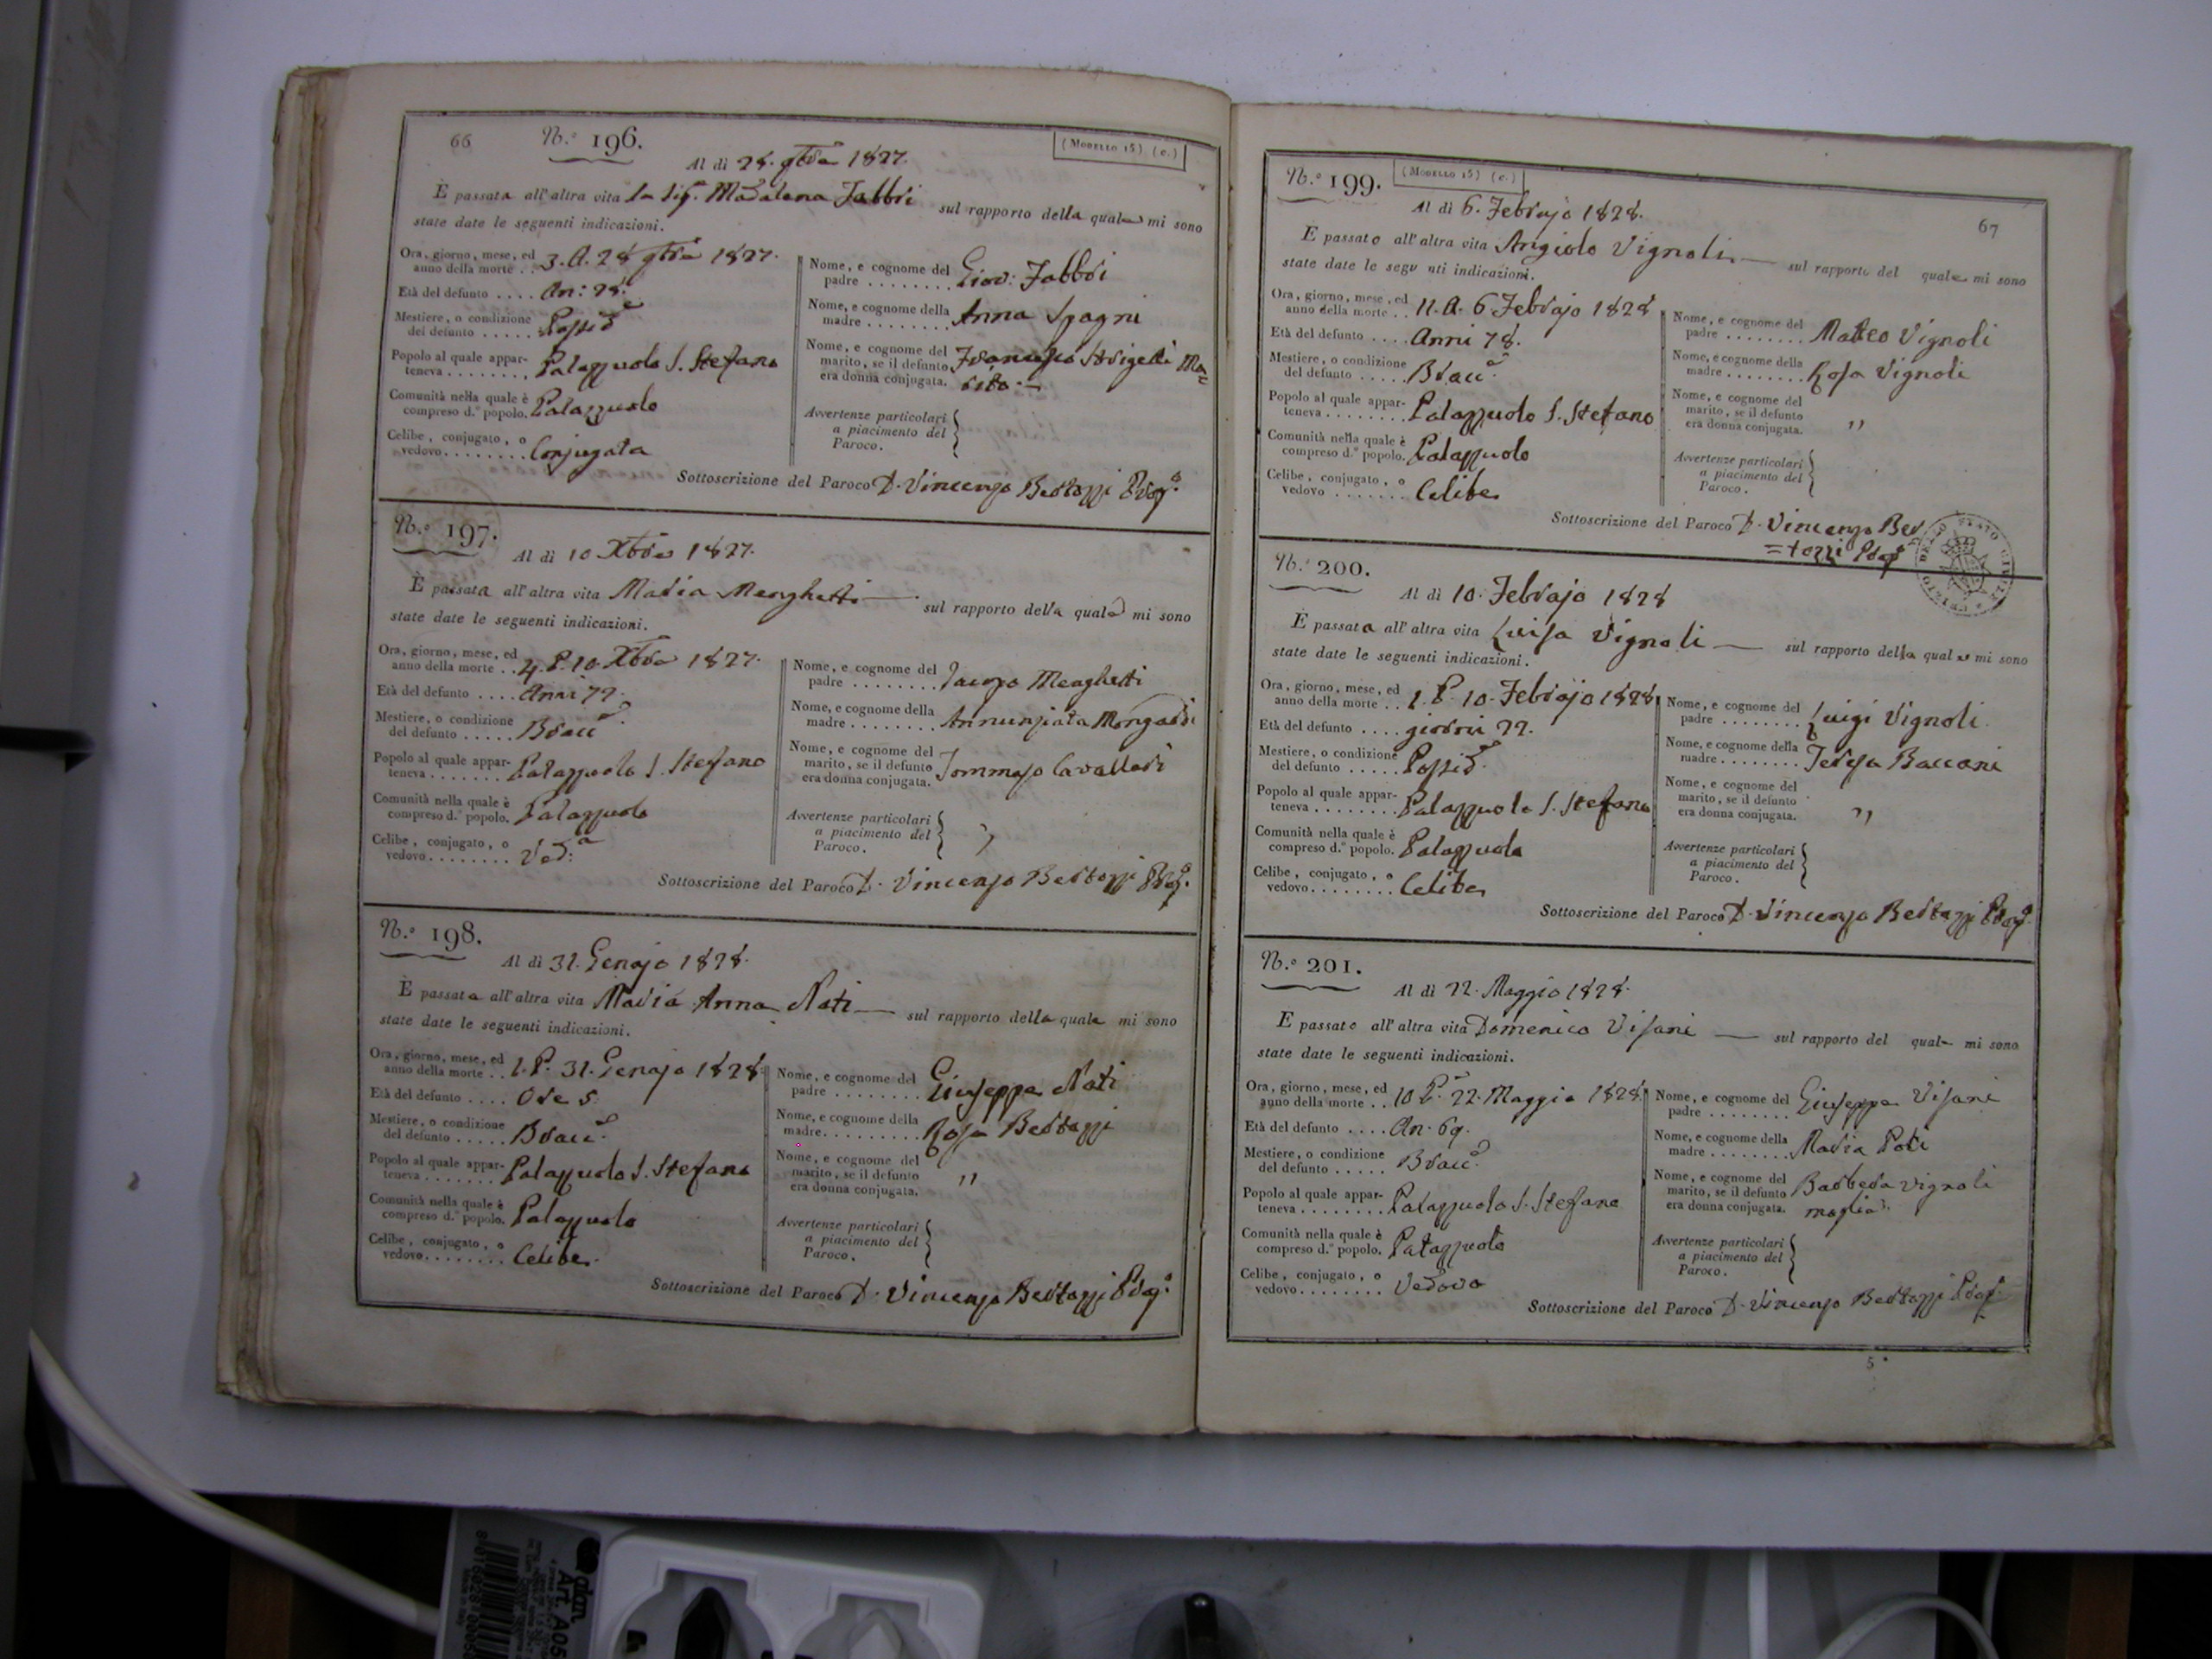 66
N.º 196.
(Modello 15) (c.)
Al dì 28. 9bre 1827.
È passata all'altra vita la Sig. Madalena Fabbri sul rapporto della quale mi sono
state date le seguenti indicazioni.
Ora, giorno, mese, ed
anno della morte . . 3. A. 28 9bre 1827.
Età del defunto . . . . An: 28.
Mestiere, o condizione
del defunto . . . . . Possid.e
Popolo al quale appar-
teneva . . . . . . . . Palazzuolo S. Stefano
Comunità nella quale è
compreso d.º popolo. Palazzuolo
Celibe, conjugato, o
vedovo. . . . . . . . Conjugata
Nome, e cognome del
padre . . . . . . . . Giov: Fabbri
Nome, e cognome della
madre . . . . . . . . Anna Spagni
Nome, e cognome del
marito, se il defunto
era donna conjugata. Francesco Strigelli Ma=
rito
Avvertenze particolari
a piacimento del
Paroco.
Sottoscrizione del Paroco D. Vincenzo Bertozzi Prop.º
N.º 197.
Al dì 10 Xbre 1827.
È passata all'altra vita Maria Menghetti sul rapporto della quale mi sono
state date le seguenti indicazioni.
Ora, giorno, mese, ed
anno della morte . . 4. P. 10. Xbre 1827.
Età del defunto . . . . Anni 77.
Mestiere, o condizione
del defunto . . . . . Bracc.e
Popolo al quale appar-
teneva . . . . . . . Palazzuolo S. Stefano
Comunità nella quale è
compreso d.º popolo. Palazzuolo
Celibe, conjugato, o
vedovo. . . . . . . . Ved:a
Nome, e cognome del
padre . . . . . . . . Jacopo Menghetti
Nome, e cognome della
madre . . . . . . . . Annunziata Mongardi
Nome, e cognome del
marito, se il defunto
era donna conjugata. Tommaso Cavallari
Avvertenze particolari
a piacimento del
Paroco. "
Sottoscrizione del Paroco D. Vincenzo Bertozzi Prop.º
N.º 198.
Al dì 31. Genajo 1828.
È passata all'altra vita Maria Anna Nati sul rapporto della quale mi sono
state date le seguenti indicazioni.
Ora, giorno, mese, ed
anno della morte . . 1. P. 31. Genajo 1828.
Età del defunto . . . . Ore 5.
Mestiere, o condizione
del defunto . . . . . Bracc.e
Popolo al quale appar-
teneva . . . . . . . Palazzuolo S. Stefano
Comunità nella quale è
compreso d.º popolo. Palazzuolo
Celibe, conjugato, o
vedovo. . . . . . . . Celibe.
Nome, e cognome del
padre . . . . . . . . Giuseppe Nati
Nome, e cognome della
madre. . . . . . . . . Rosa Bertozzi
Nome, e cognome del
marito, se il defunto
era donna conjugata. "
Avvertenze particolari
a piacimento del
Paroco.
Sottoscrizione del Paroco D. Vincenzo Bertozzi Prop.º
N.º 199.
(Modello 15) (c.)
67
Al dì 6. Febrajo 1828.
È passato all'altra vita Angiolo Vignoli sul rapporto del quale mi sono
state date le segu nti indicazioni.
Ora, giorno, mese, ed
anno della morte . . 11. A. 6 Febrajo 1828
Età del defunto . . . . Anni 78.
Mestiere, o condizione
del defunto . . . . . Bracc.e
Popolo al quale appar-
teneva . . . . . . . . Palazzuolo S. Stefano
Comunità nella quale è
compreso d.º popolo. Palazzuolo
Celibe, conjugato, o
vedovo . . . . . . . . Celibe
Nome, e cognome del
padre . . . . . . . . Mateo Vignoli
Nome, e cognome della
madre . . . . . . . . Rosa Vignoli
Nome, e cognome del
marito, se il defunto
era donna conjugata. "
Avvertenze particolari
a piacimento del
Paroco.
Sottoscrizione del Paroco D. Vincenzo Ber
=tozzi Prop.º
STATO CIVILE
N.º 200.
Al dì 10. Febrajo 1828
È passata all'altra vita Luisa Vignoli sul rapporto della quale mi sono
state date le seguenti indicazioni.
Ora, giorno, mese, ed
anno della morte . . 1. P. 10. Febrajo 1828
Età del defunto . . . . giorni 22.
Mestiere, o condizione
del defunto . . . . . Possid.e
Popolo al quale appar-
teneva . . . . . . . . Palazzuolo S. Stefano
Comunità nella quale è
compreso d.º popolo. Palazzuolo
Celibe, conjugato, o
vedovo. . . . . . . . Celibe
Nome, e cognome del
padre . . . . . . . . Luigi Vignoli.
Nome, e cognome della
madre . . . . . . . . Teresa Baccani
Nome, e cognome del
marito, se il defunto
era donna conjugata. "
Avvertenze particolari
a piacimento del
Paroco.
Sottoscrizione del Paroco D. Vincenzo Bertozzi Prop.º
N.º 201.
Al dì 22. Maggio 1828.
È passato all'altra vita Domenico Visani sul rapporto del quale mi sono
state date le seguenti indicazioni.
Ora, giorno, mese, ed
anno della morte . . 10 P. 22. Maggio 1828.
Età del defunto . . . . An. 69.
Mestiere, o condizione
del defunto . . . . . Bracc.e
Popolo al quale appar-
teneva . . . . . . . . Palazzuolo S. Stefano
Comunità nella quale è
compreso d.º popolo. Palazzuolo
Celibe, conjugato, o
vedovo. . . . . . . . Vedovo
Nome, e cognome del
padre . . . . . . . . Giuseppe Visani
Nome, e cognome della
madre . . . . . . . . Maria Poli
Nome, e cognome del
marito, se il defunto
era donna conjugata. Barbera Vignoli
moglie
Avvertenze particolari
a piacimento del
Paroco.
Sottoscrizione del Paroco D. Vincenzo Bertozzi Prop.º
5*
Art. A05